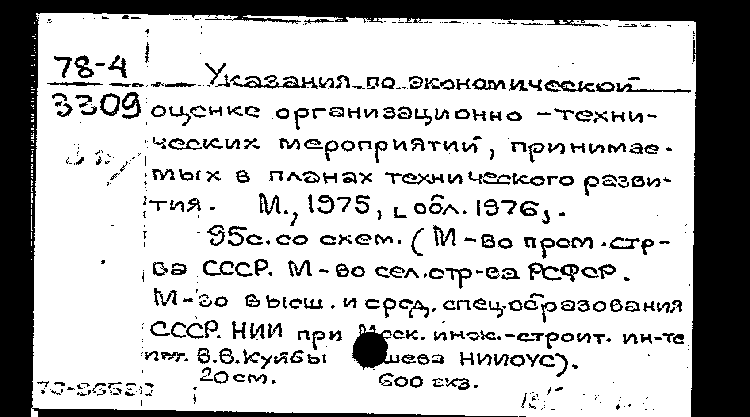 78-4
3309
Указания по экономической
оценке организационно-техни-
ческих мероприятий, принимае-
мых в планах технического разви-
тия. М., 1975, [обл. 1976].
95с. со схем. (М-во пром. стр-
ва СССР. М-во сел. стр-ва РСФСР.
М-во высш. и сред. спец. образования
СССР. НИИ при Моск. инж.-строит. ин-те
им. В.В. Куйбы шева НИИОУС).
20см. 600 экз.